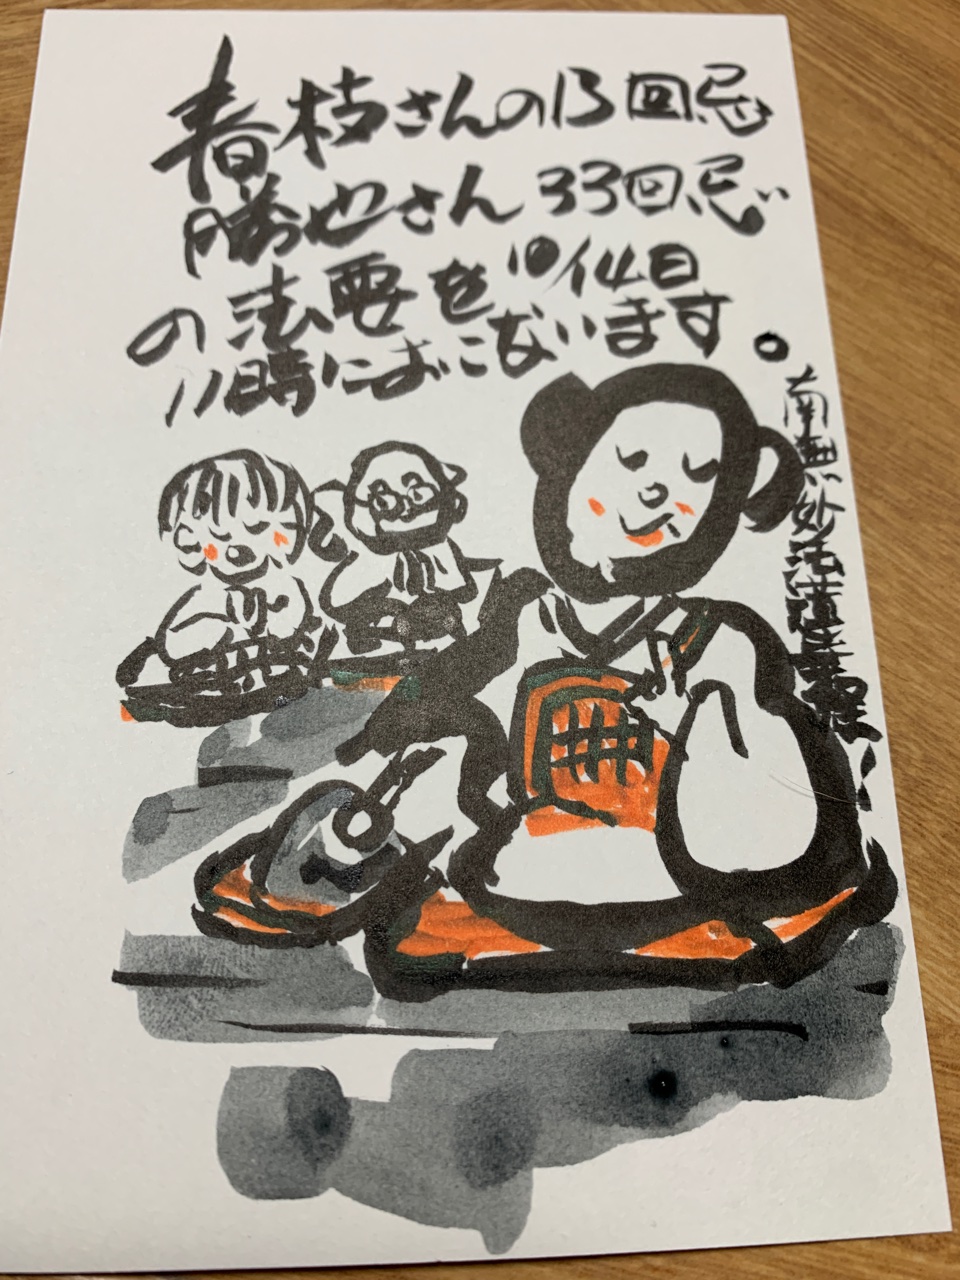 春枝さんの13回忌
勝也さん33回忌
の法要を10/14日
11時におこないます。
南無妙法蓮華経